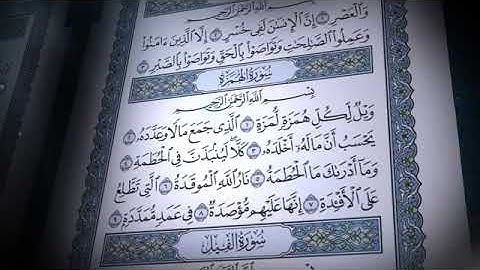 بِسْمِ اللَّهِ الرَّحْمَٰنِ الرَّحِيمِ
وَالْعَصْرِ ١ إِنَّ الْإِنسَٰنَ لَفِى خُسْرٍ ٢ إِلَّا الَّذِينَ ءَامَنُوا
وَعَمِلُوا الصَّٰلِحَٰتِ وَتَوَاصَوْا بِالْحَقِّ وَتَوَاصَوْا بِالصَّبْرِ ٣
سُورَةُ الْهُمَزَةِ
بِسْمِ اللَّهِ الرَّحْمَٰنِ الرَّحِيمِ
وَيْلٌ لِّكُلِّ هُمَزَةٍ لُّمَزَةٍ ١ الَّذِى جَمَعَ مَالًا وَعَدَّدَهُۥ ٢
يَحْسَبُ أَنَّ مَالَهُۥٓ أَخْلَدَهُۥ ٣ كَلَّا لَيُنۢبَذَنَّ فِى الْحُطَمَةِ ٤
وَمَآ أَدْرَىٰكَ مَا الْحُطَمَةُ ٥ نَارُ اللَّهِ الْمُوقَدَةُ ٦ الَّتِى تَطَّلِعُ
عَلَى الْأَفْـِٔدَةِ ٧ إِنَّهَا عَلَيْهِم مُّؤْصَدَةٌ ٨ فِى عَمَدٍ مُّمَدَّدَةٍۭ ٩
سُورَةُ الْفِيلِ